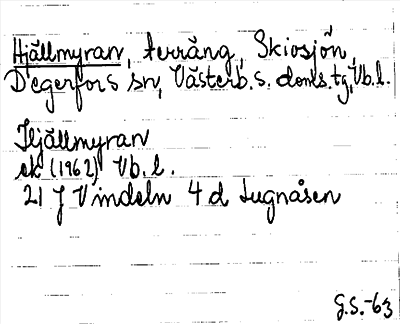 Hjällmyran, terräng, Skiosjön,
Degerfors sn, Västerb.s. doms.tg, Vb.l.
Hjällmyran
ek (1962) Vb.l.
21 J Vindeln 4 d Lugnåsen
G.S.-63